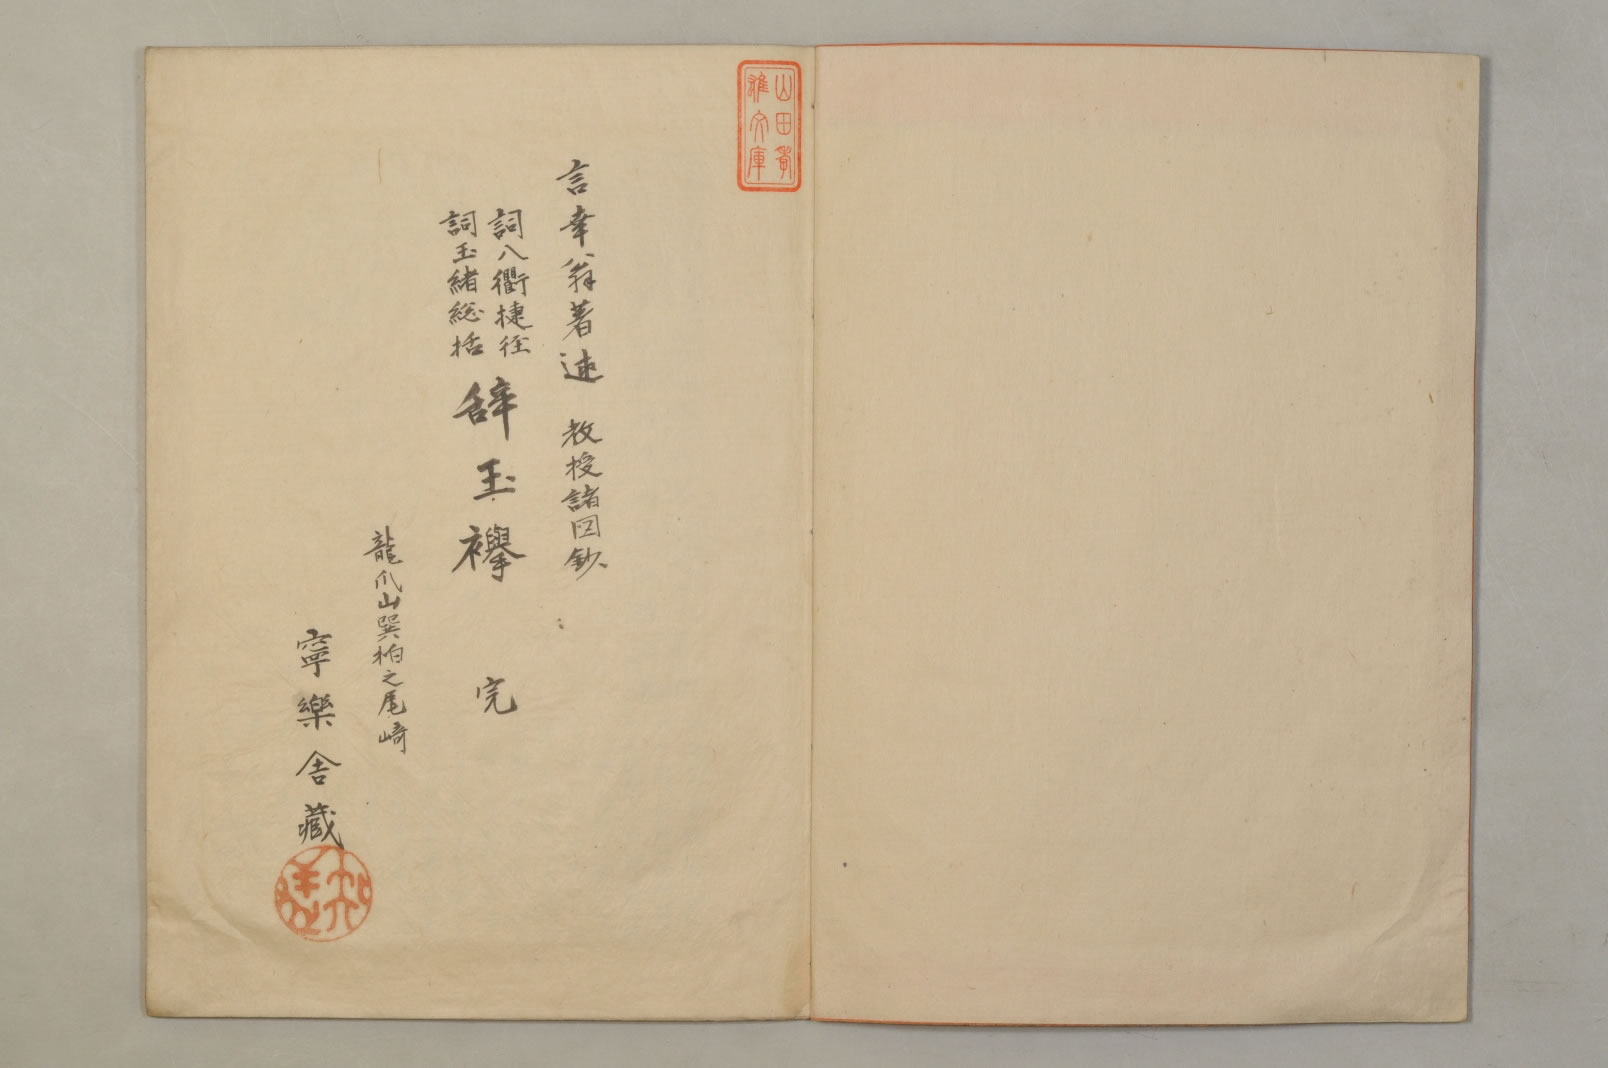 山田孝
雄文庫
言幸翁著述　教授諸図鈔
詞八衢捷径
詞玉緒総括
辞玉襷　完
龍爪山巽柏之尾崎
寧樂舎藏